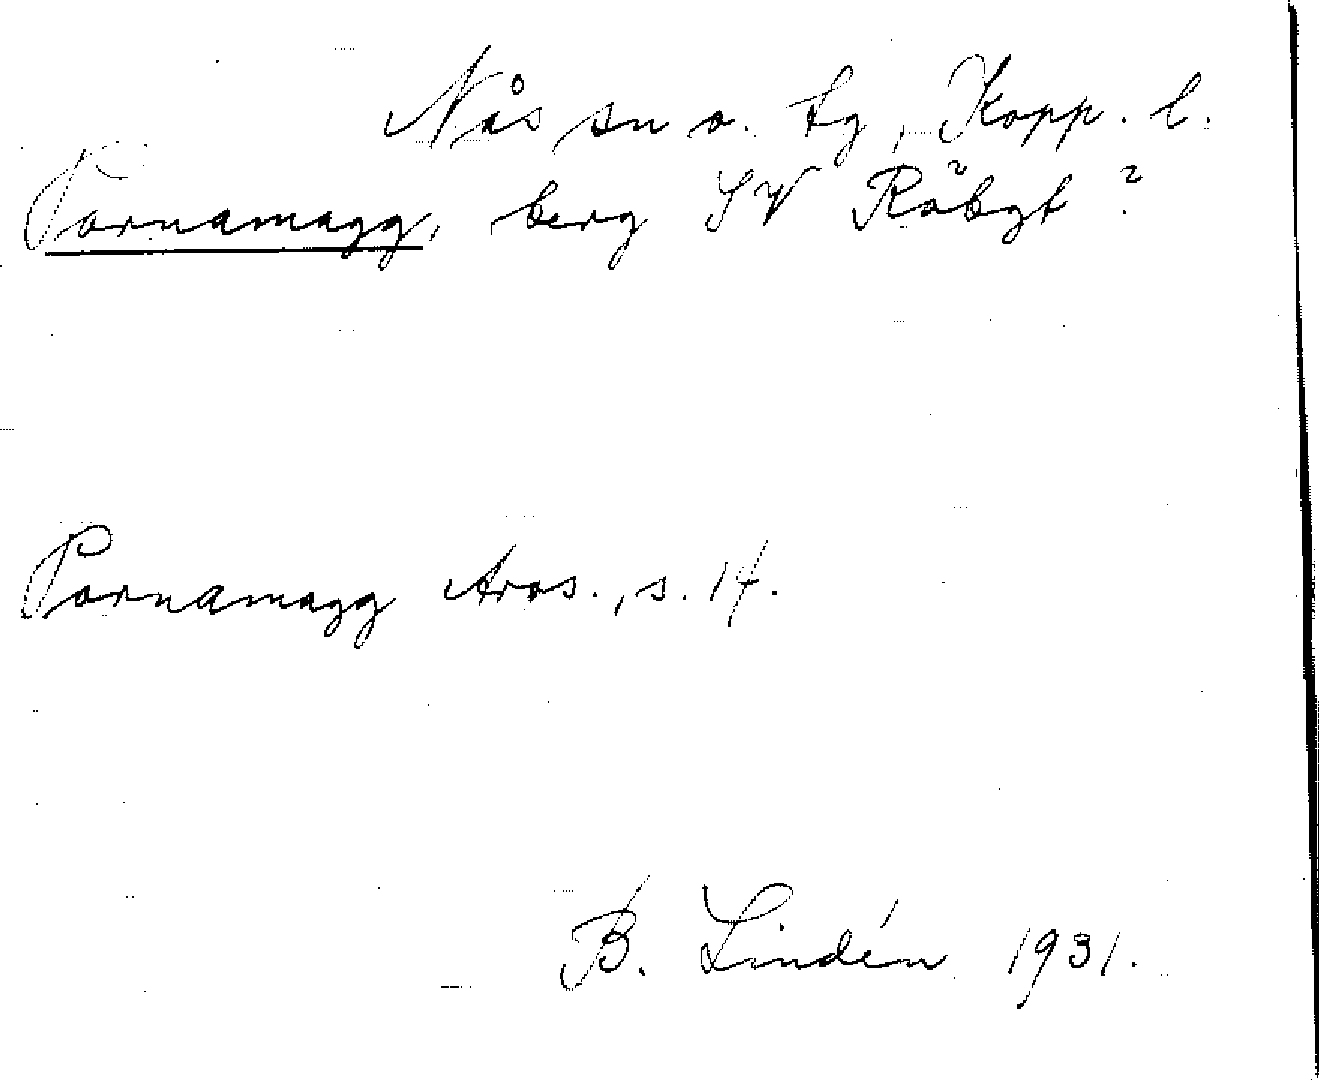 Nås sn o. tg, Kopp. l.
Pornamagg, berg SV Råbgt ?
Pornamagg Aros., s. 14.
B. Lindén 1931.